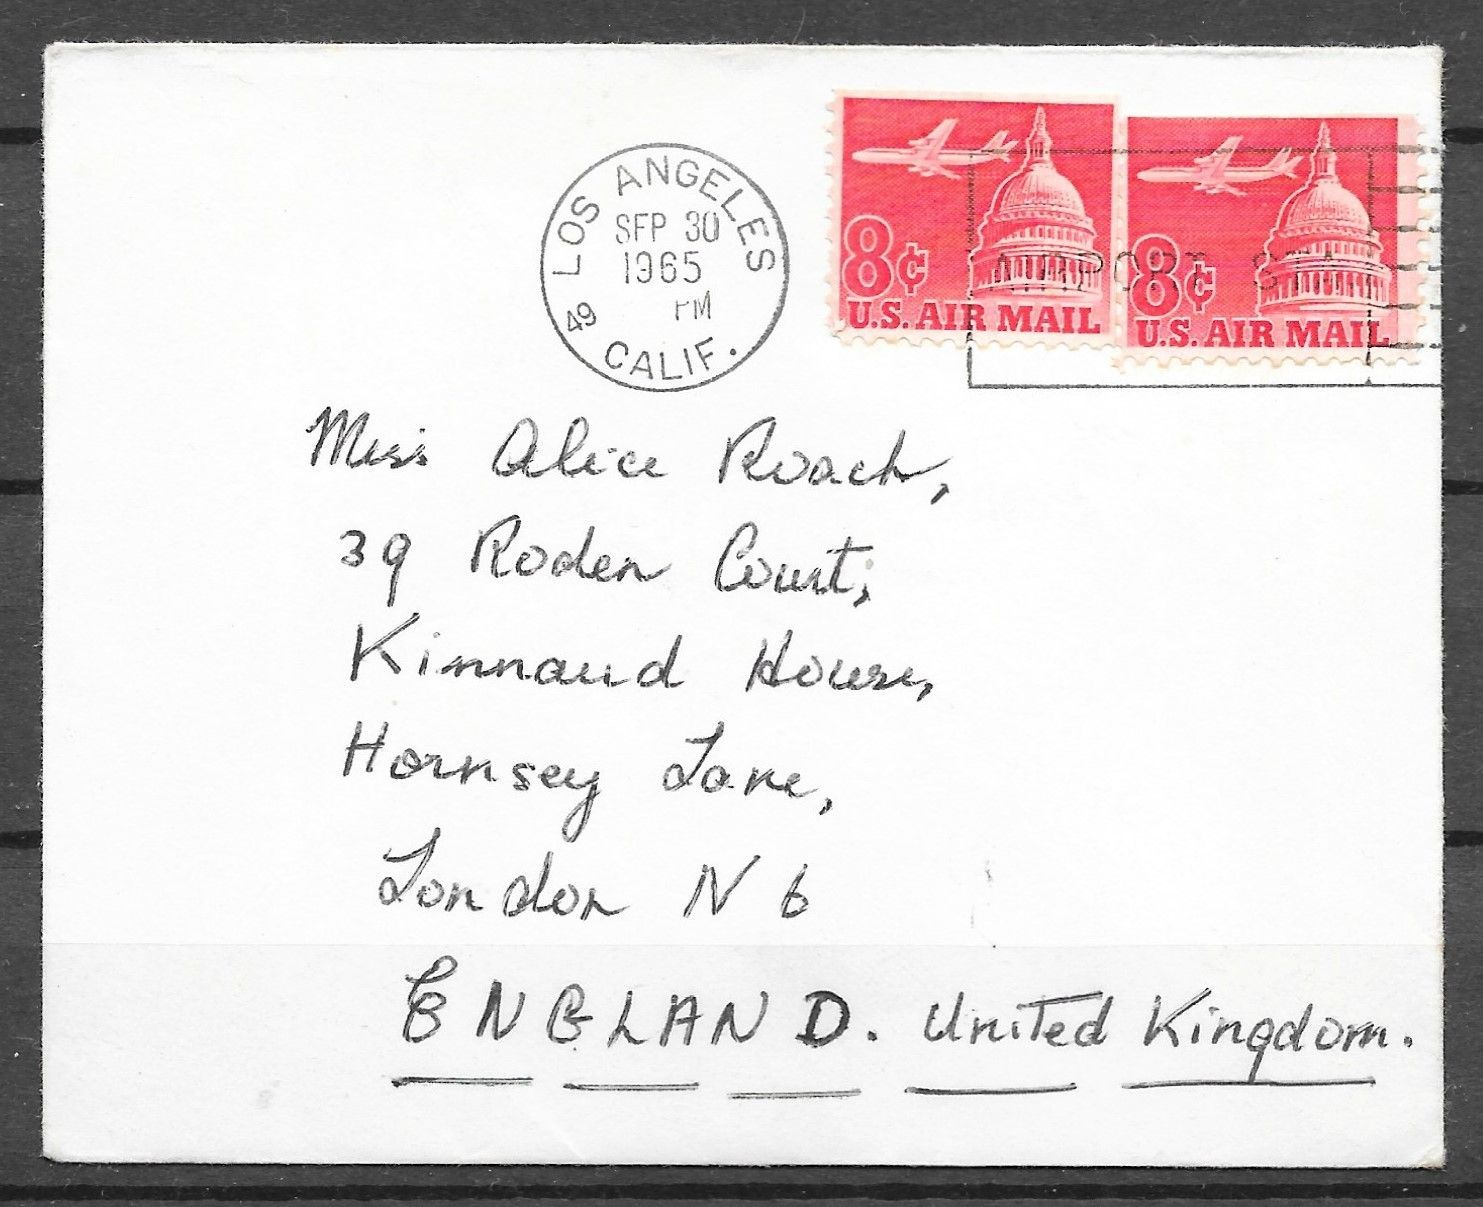 LOS ANGELES
SEP 30
1965
PM
49
CALIF.
8¢
U.S. AIR MAIL
8¢
U.S. AIR MAIL
AIRPORT STA
Miss Alice Roach,
39 Roden Court,
Kinnaud House,
Hornsey Lane,
London N 6
ENGLAND. United Kingdom.